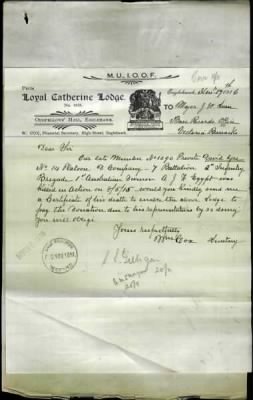 M.U.I.O.O.F.
FROM
Loyal Catherine Lodge,
ODDFELLOWS' HALL, EAGLEHAWK.
W. COX, Financial Secretary, High Street, Eaglehawk.
Eaglehawk,
TO
Major J. W.
Base Records Office
Victoria Barracks
Dear Sir
Our late Member No 1290 Private David
No 14 Platoon D Company 7 Battalion 2nd Infantry
Brigade 1st Australian Division A I F Egypt was
killed in Action on 8/5/15 would you kindly send me
a Certificate of his death to enable the above Lodge to
pay the Donation due to his representatives by so doing
you will oblige
Yours respectfully
Wm Cox Secretary
20/11